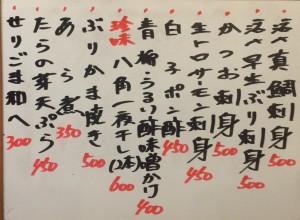 活〆真鯛刺身 500
活〆早生ぶり刺身 500
かつお刺身 500
生トロサーモン刺身 450
白子ポン酢 450
青柳・うるい酢味噌かけ 400
珍味 八角一夜干し(2本) 600
ぶりかま焼き 500
あら煮 350
たらの芽天ぷら 450
せりごま和へ 300